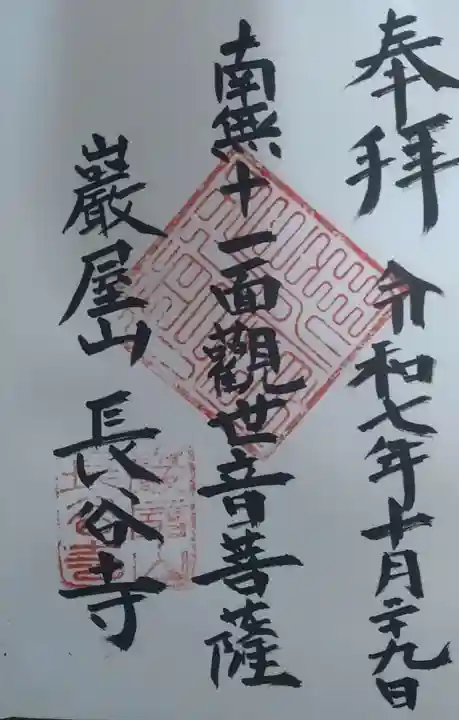 奉拜 令和七年十月二十九日
南無十一面觀世音菩薩
巖屋山 長谷寺